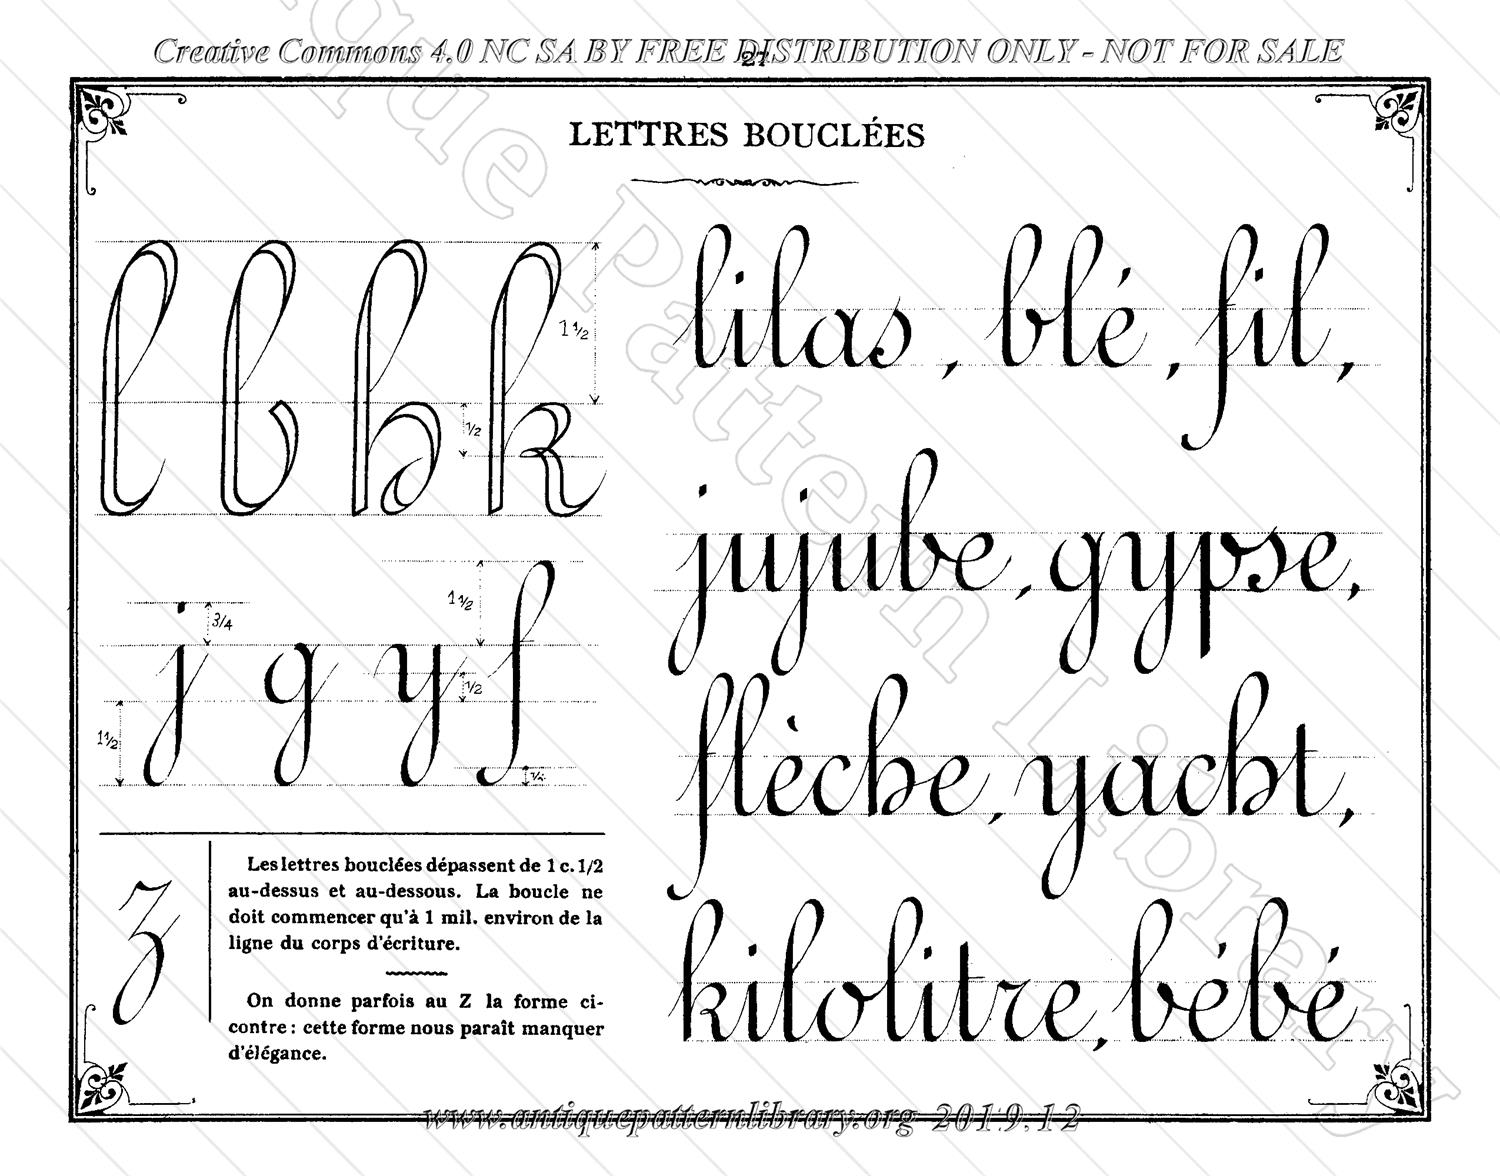 Creative Commons 4.0 NC SA BY FREE DISTRIBUTION ONLY - NOT FOR SALE
27
LETTRES BOUCLÉES
l b h k
1 1/2
1/2
j g y f
3/4
1 1/2
1 1/2
1/2
1/4
z
Les lettres bouclées dépassent de 1 c. 1/2
au-dessus et au-dessous. La boucle ne
doit commencer qu'à 1 mil. environ de la
ligne du corps d'écriture.
On donne parfois au Z la forme ci-
contre : cette forme nous paraît manquer
d'élégance.
lilas, blé, fil,
jujube, gypse,
flèche, yacht,
kilolitre, bébé
Antique Pattern Library
www.antiquepatternlibrary.org 2019.12